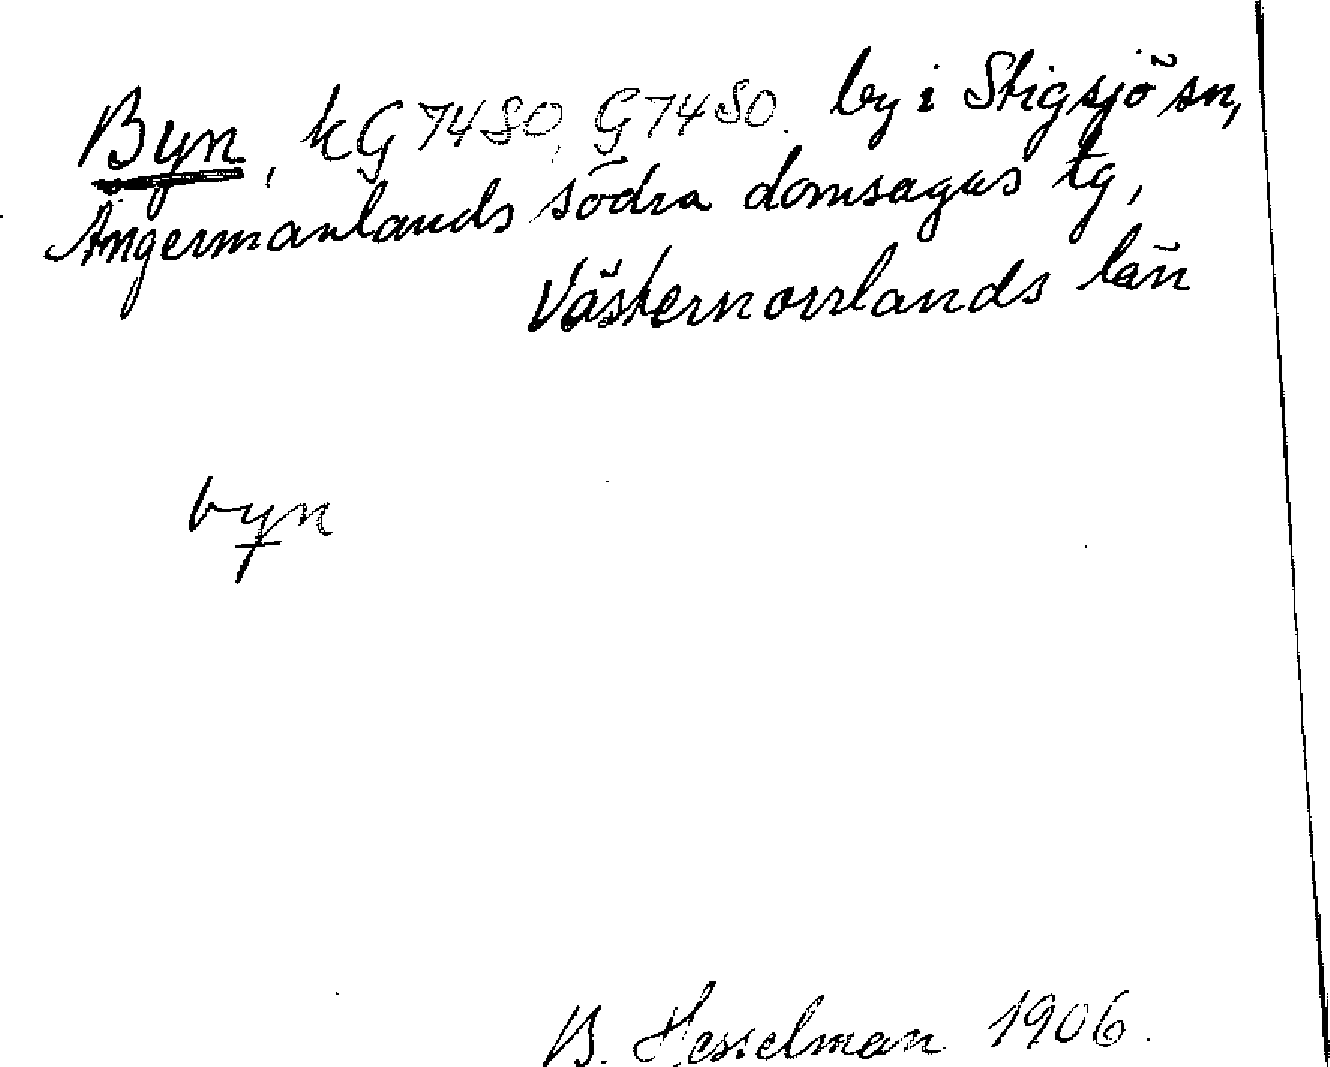 Byn, kG7480, G7480. by i Stigsjö sn,
Ångermanlands södra domsagas tg,
Västernorrlands län
byn
B. Hesselman 1906.